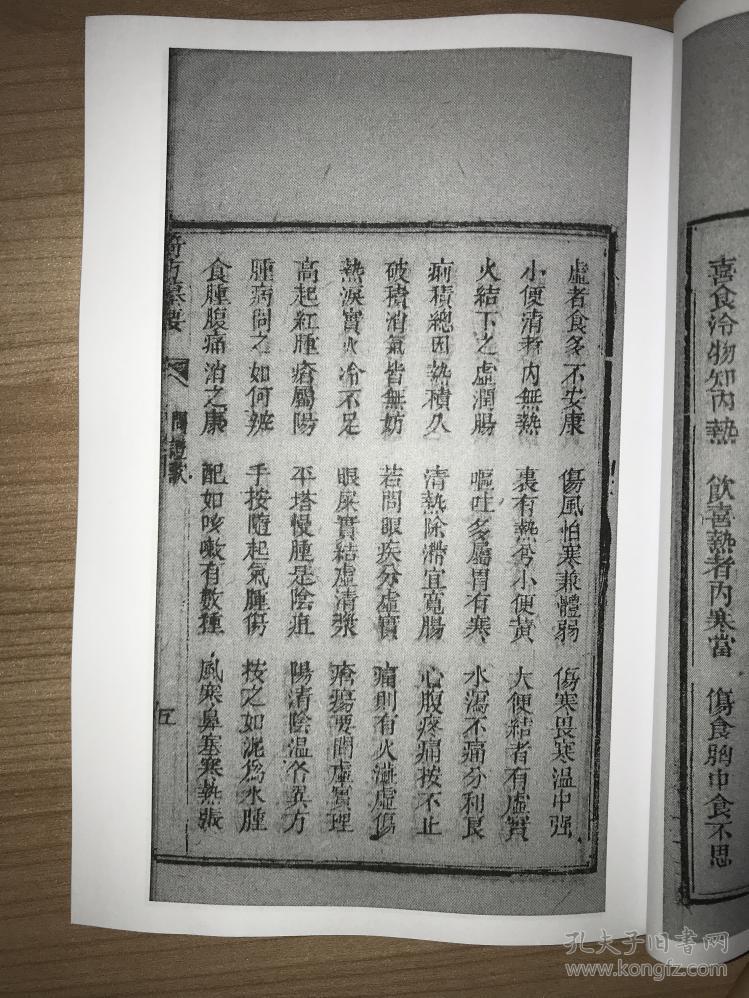 喜食冷物知內熱 飲喜熱者內寒當 傷食胸中食不思
虛者食多不安康 傷風怕寒兼體弱 傷寒畏寒温中强
小便清者內無熱 裏有熱兮小便黃 大便結者有虛實
火結下之虛潤腸 嘔吐多屬胃有寒 水瀉不痛分利良
痢積總因熱積久 清熱除滯宜寬腸 心腹疼痛按不止
破積消氣皆無妨 若問眼疾分虛實 痛則有火澁虛傷
熱淚實火冷不足 眼屎實結虛清漿 瘡瘍要問虛實理
高起紅腫瘡屬陽 平塔慢腫是陰疽 陽清陰温各異方
腫病問之如何辨 手按隨起氣腫傷 按之如泥爲水腫
食腫腹痛消之康 配如咳嗽有數種 風寒鼻塞寒熱張
問證歌
五
孔夫子旧书网
www.kongfz.com